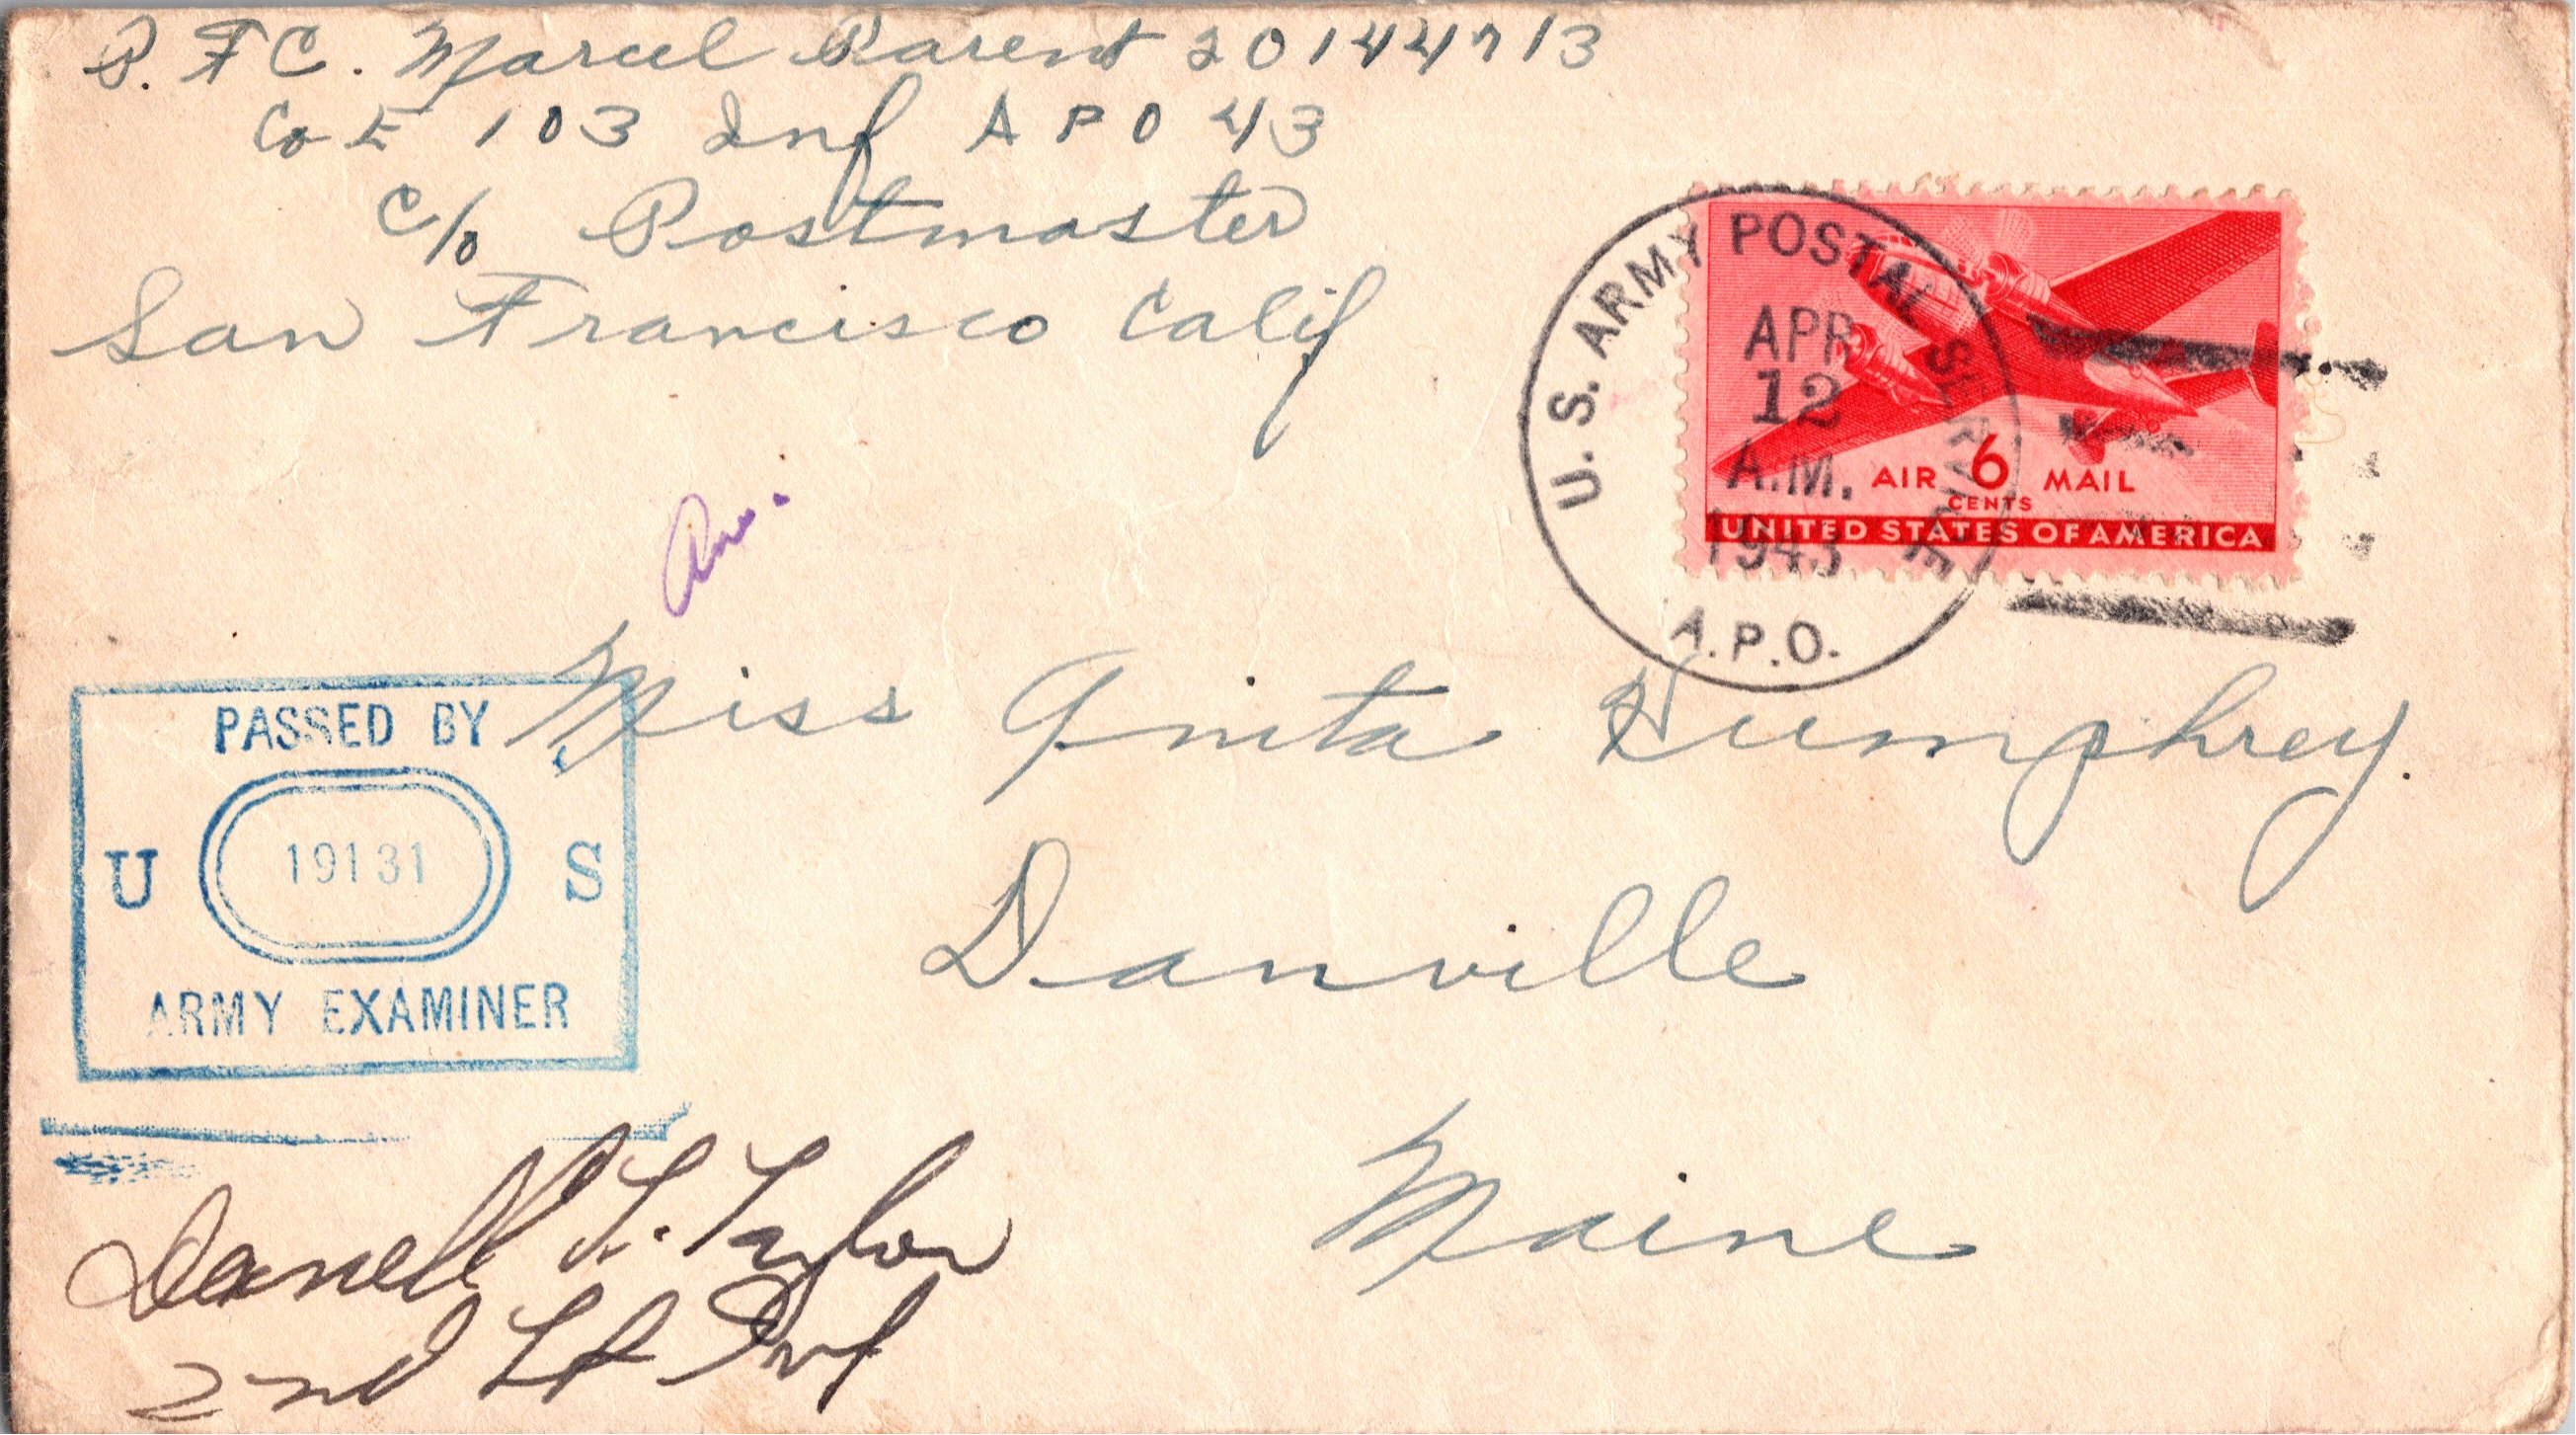 P. F C. Marcel Parent 20144713
Co E 103 Inf A P O 43
c/o Postmaster
San Francisco Calif
U. S. ARMY POSTAL SERVICE
APR
12
A.M.
1943
A.P.O.
AIR 6 MAIL
CENTS
UNITED STATES OF AMERICA
Miss Anita Humphrey.
Danville
Maine
PASSED BY
U 19131 S
ARMY EXAMINER
Taylor
2nd Lt Inf